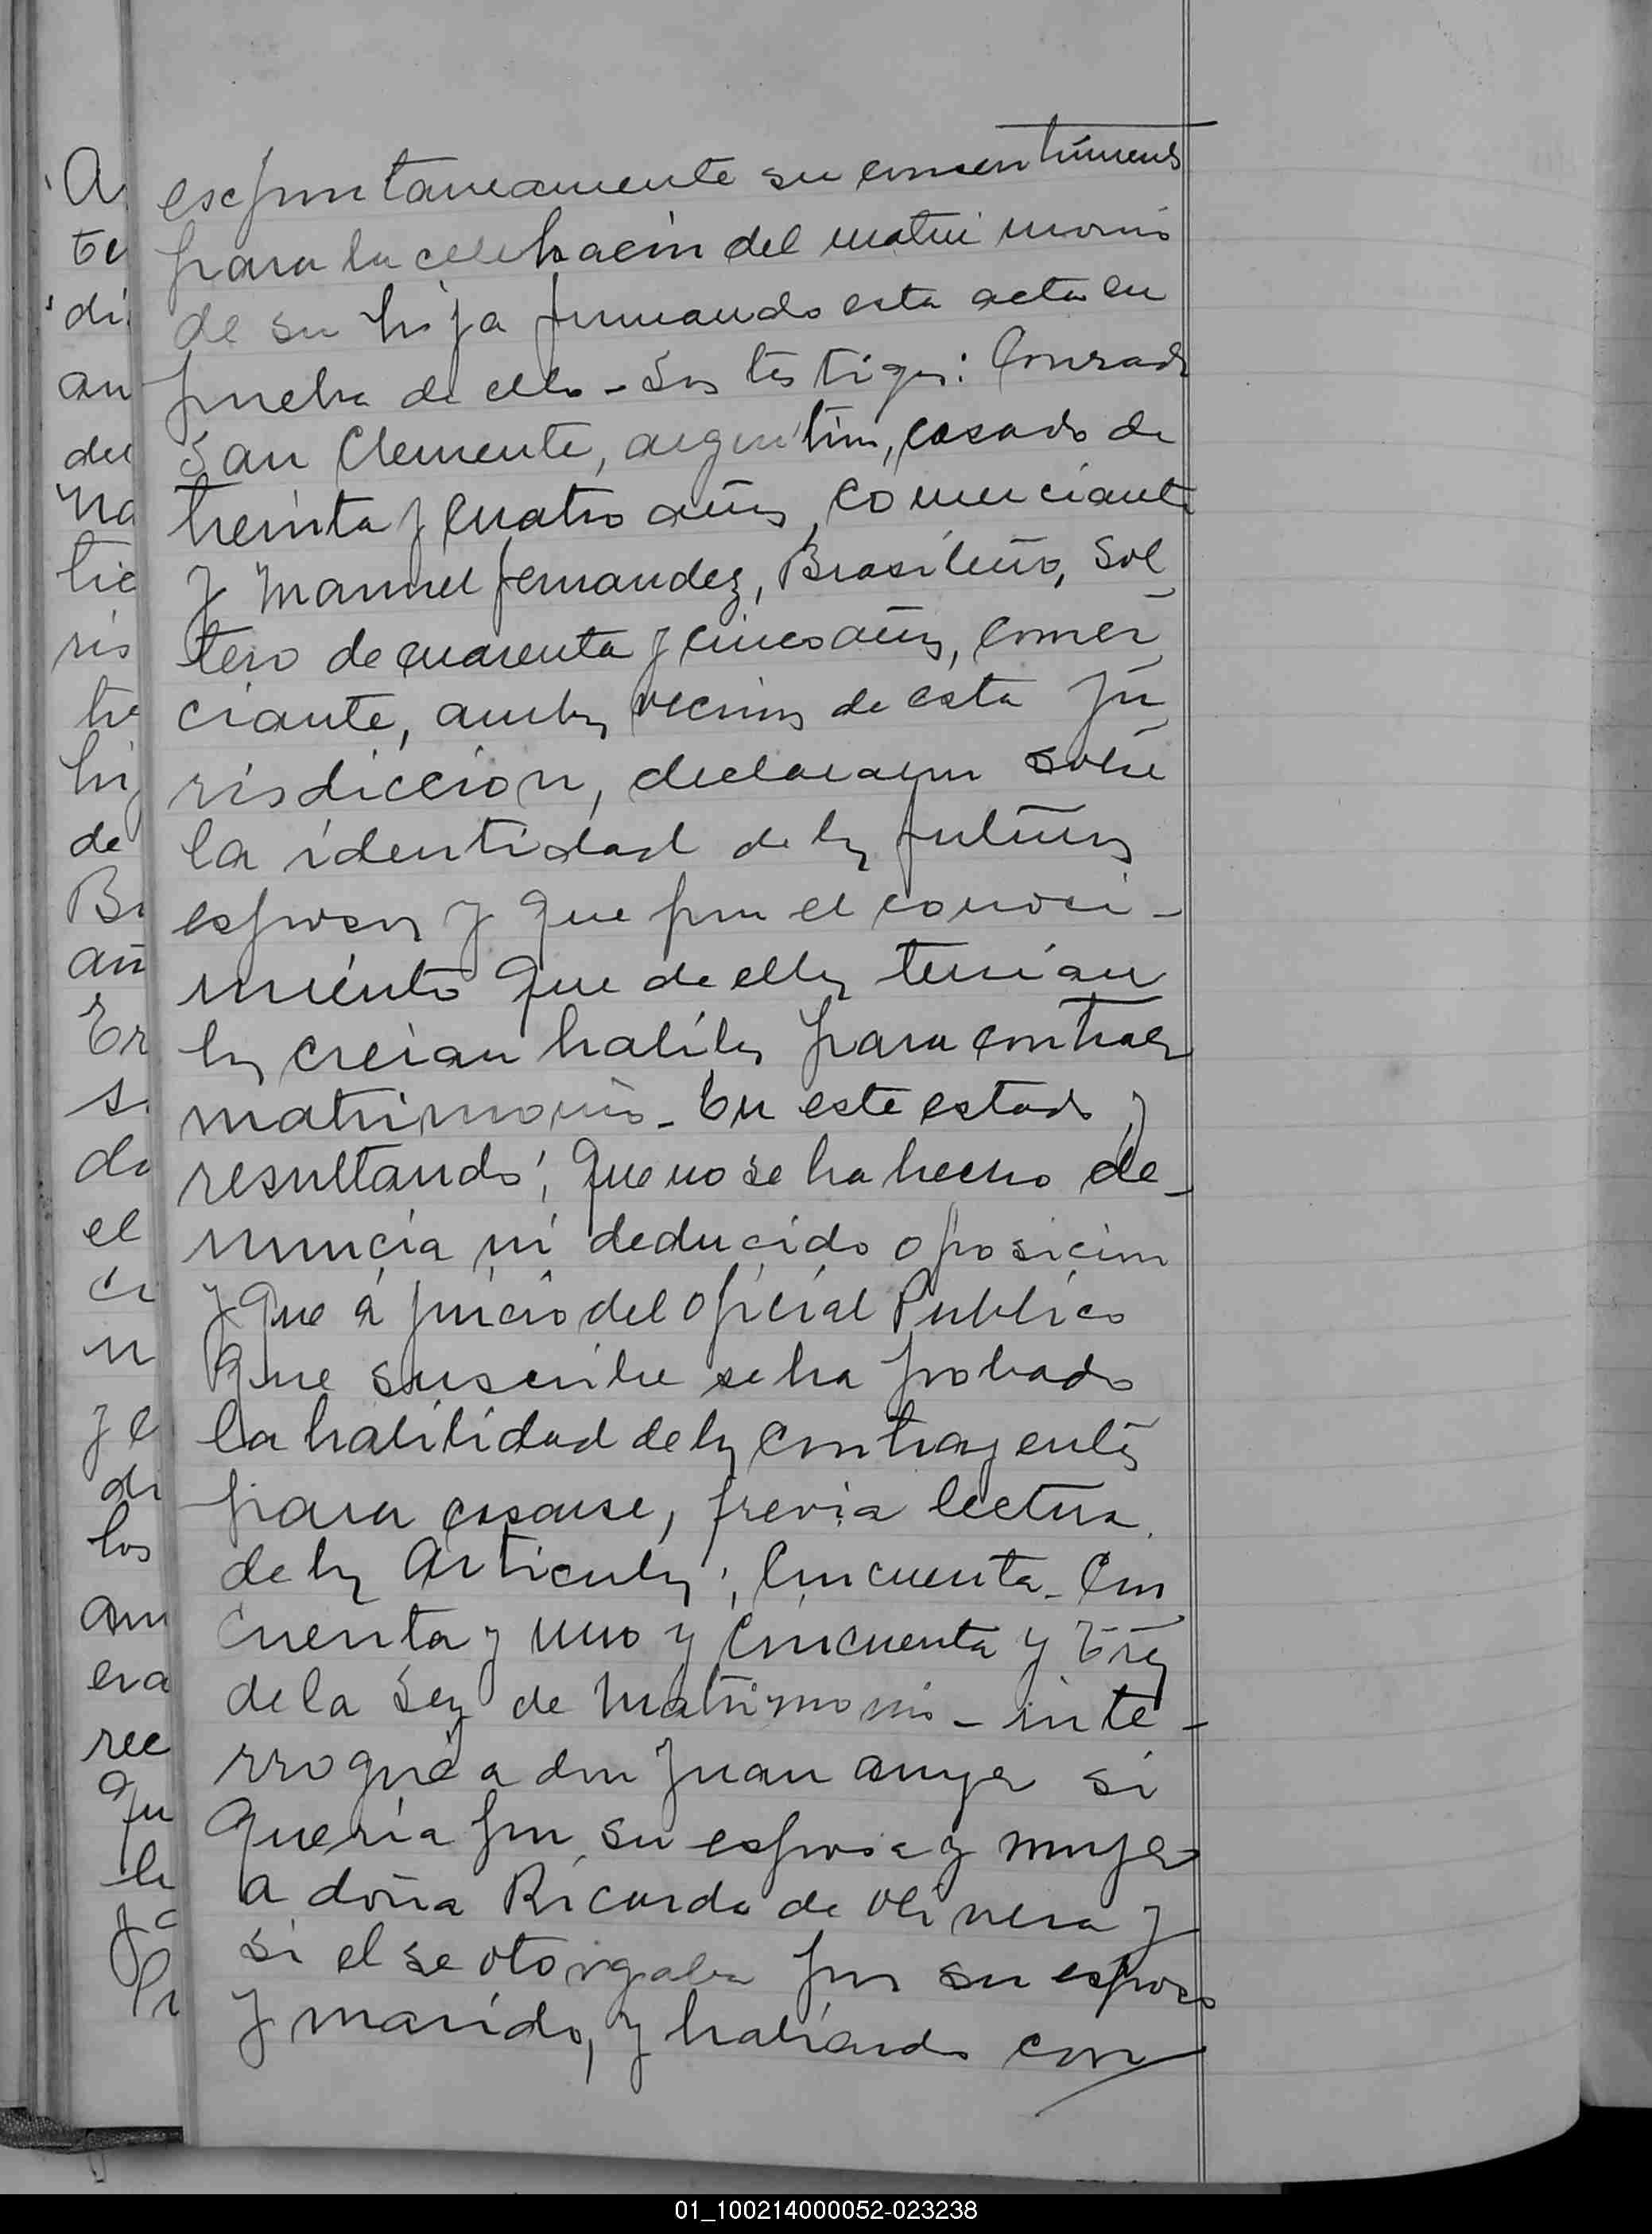 A
te
di
an
del
na
tie
ris
tre
hij
de
Br
añ
Er
s
do
el
ci
n
y e
di
los
am
era
rec
qu
la
y c
Pr
espontaneamente su consentimiento
para la celebración del matrimonio
de su hija firmando esta acta en
prueba de ello - Los testigos: Conrado
San Clemente, argentino, casado de
treinta y cuatro años, comerciante
y Manuel Fernandez, Brasileño, Sol
tero de cuarenta y cinco años, comer
ciante, ambos vecinos de esta Ju
risdiccion, declararon sobre
la identidad de los futuros
esposos y que por el conoci-
miento que de ellos tenían
los creían habiles para contraer
matrimonio - En este estado y
resultando; que no se ha hecho de-
nuncia ni deducido oposicion
y que á juicio del oficial Publico
que suscribe se ha probado
la habilidad de los contrayentes
para casarse, previa lectura
de los Articulos; Cincuenta - Cin
cuenta y uno y Cincuenta y tres
de la Ley de Matrimonio - inte-
rrogué a don Juan si
quería por su esposa y mujer
a doña Ricarda de Olivera y
si el se otorgaba por su esposo
y marido, y habiendo con
01_100214000052-023238